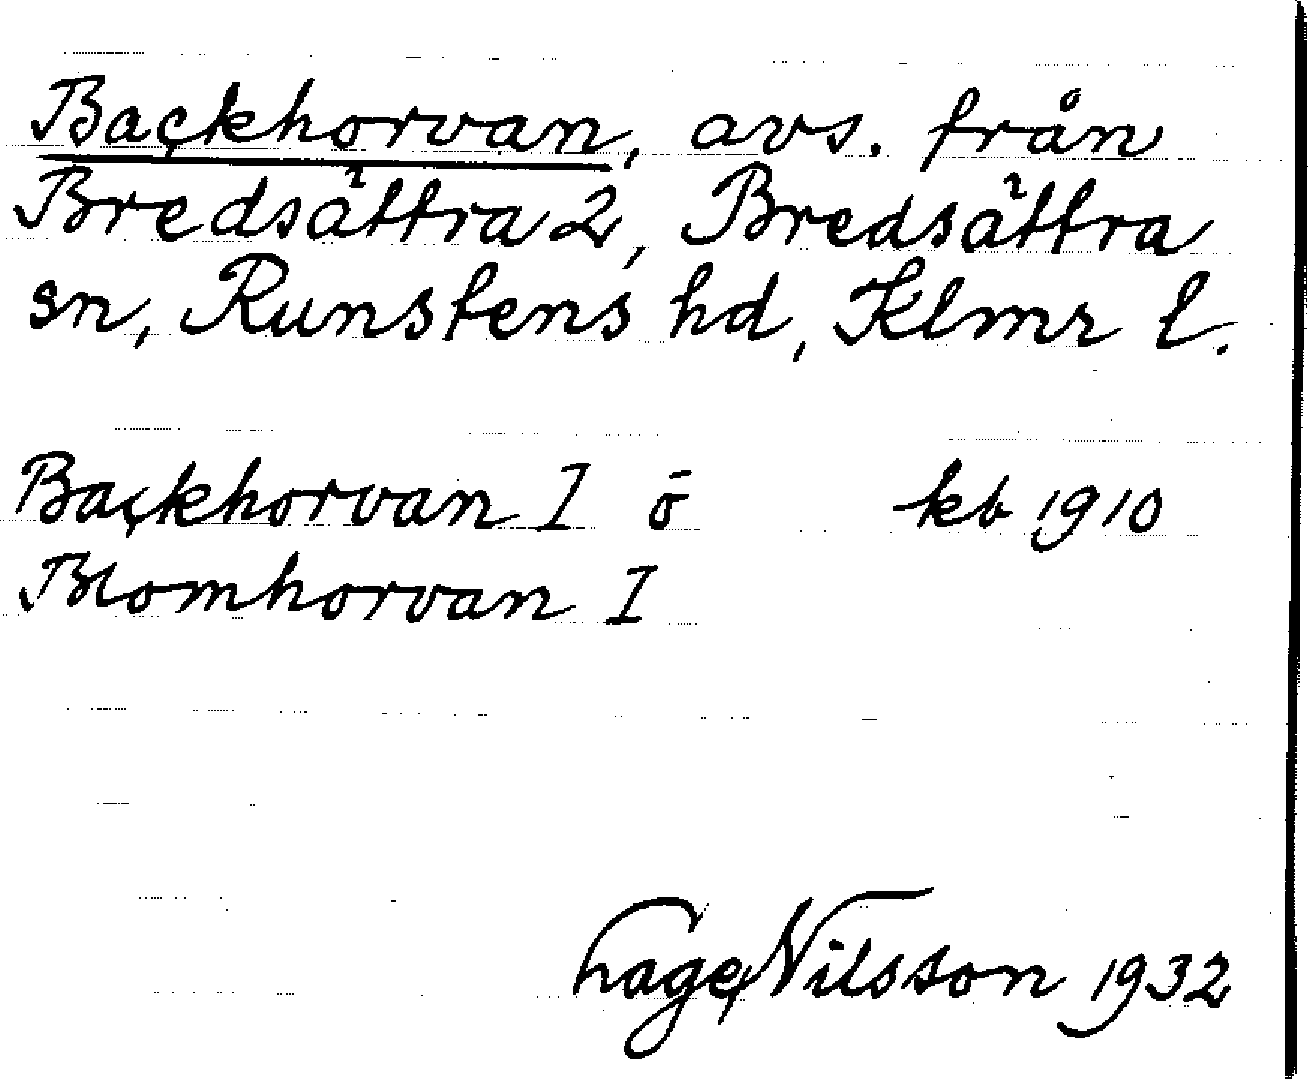 Backhorvan, avs. från
Bredsättra 2, Bredsättra
sn, Runstens hd, Klmr l.
Backhorvan I ö kb 1910
Blomhorvan I
Hage Nilsson 1932